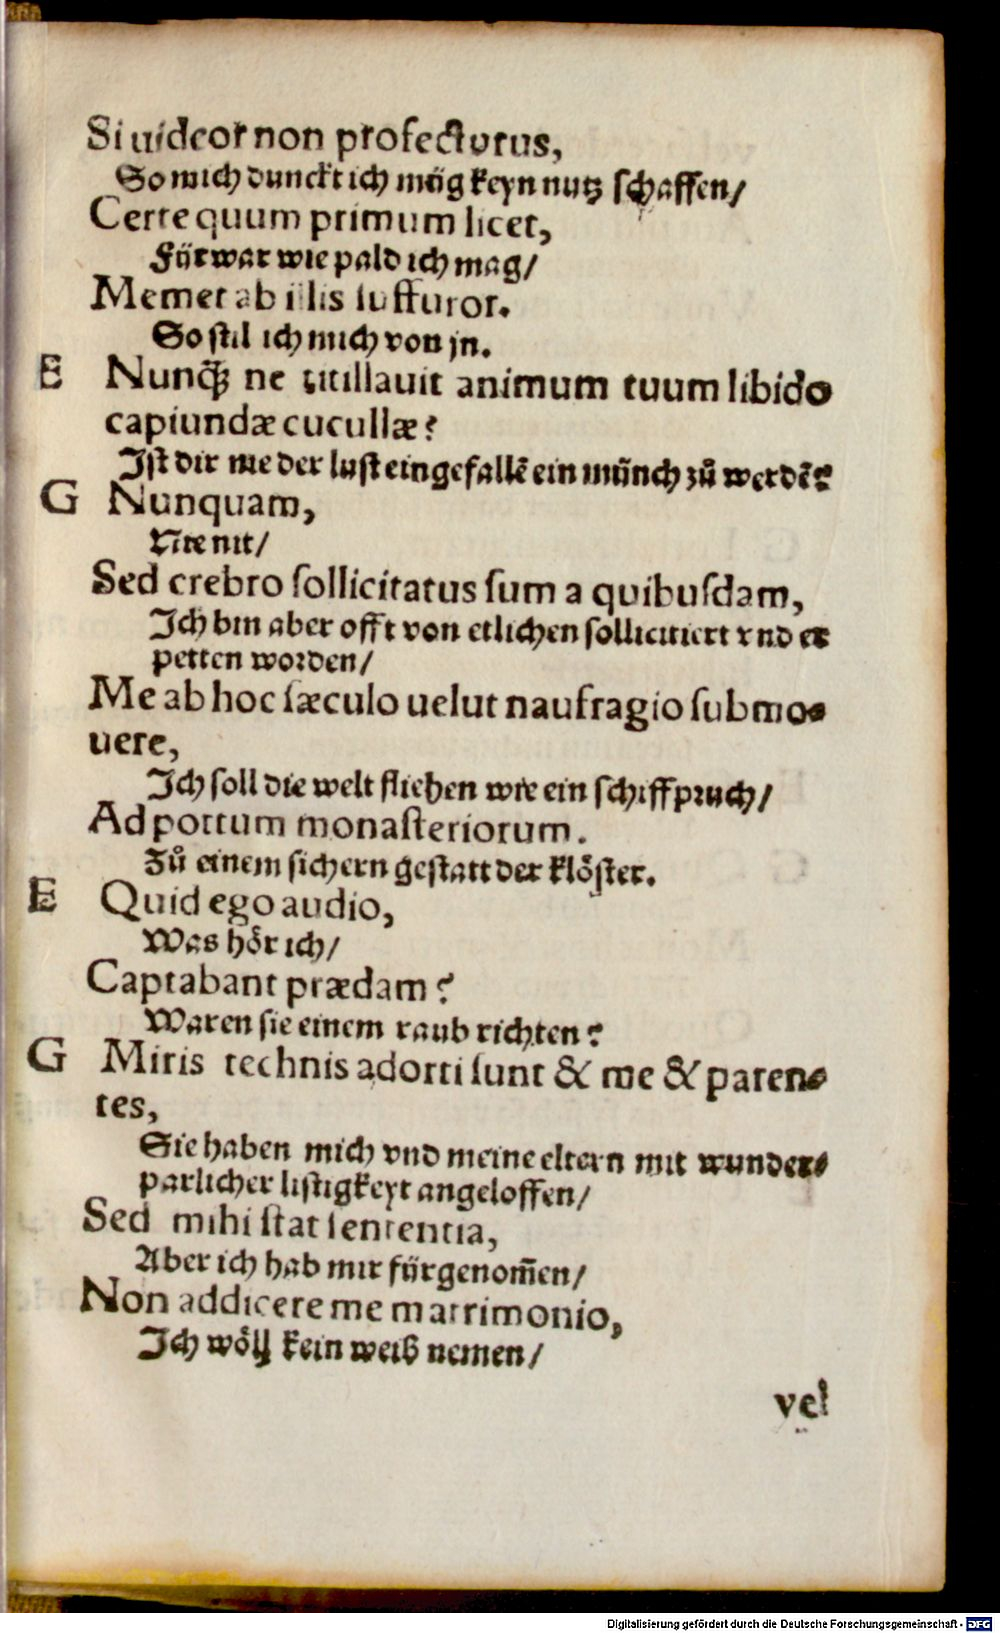 Si uideor non profecturus,
So mich dunckt ich mög keyn nutz schaffen/
Certe quum primum licet,
Fürwar wie pald ich mag/
Memet ab illis suffuror.
So stil ich mich von jn.
E Nunꝗ̃ ne titillauit animum tuum libido
capiundæ cucullæ?
Ist dir nie der lust eingefallē ein münch zů werdē?
G Nunquam,
Nie nit/
Sed crebro sollicitatus sum a quibusdam,
Ich bin aber offt von etlichen sollicitiert vnd er
petten worden/
Me ab hoc sæculo uelut naufragio submo⸗
uere,
Ich soll die welt fliehen wie ein schiffpruch/
Ad portum monasteriorum.
Zů einem sichern gestatt der klöster.
E Quid ego audio,
Was hör ich/
Captabant prædam?
Waren sie einem raub richten?
G Miris technis adorti sunt & me & paren⸗
tes,
Sie haben mich vnd meine eltern mit wunder⸗
parlicher listigkeyt angeloffen/
Sed mihi stat sententia,
Aber ich hab mir fürgenom̄en/
Non addicere me matrimonio,
Ich wöll kein weib nemen/
vel
Digitalisierung gefördert durch die Deutsche Forschungsgemeinschaft - DFG